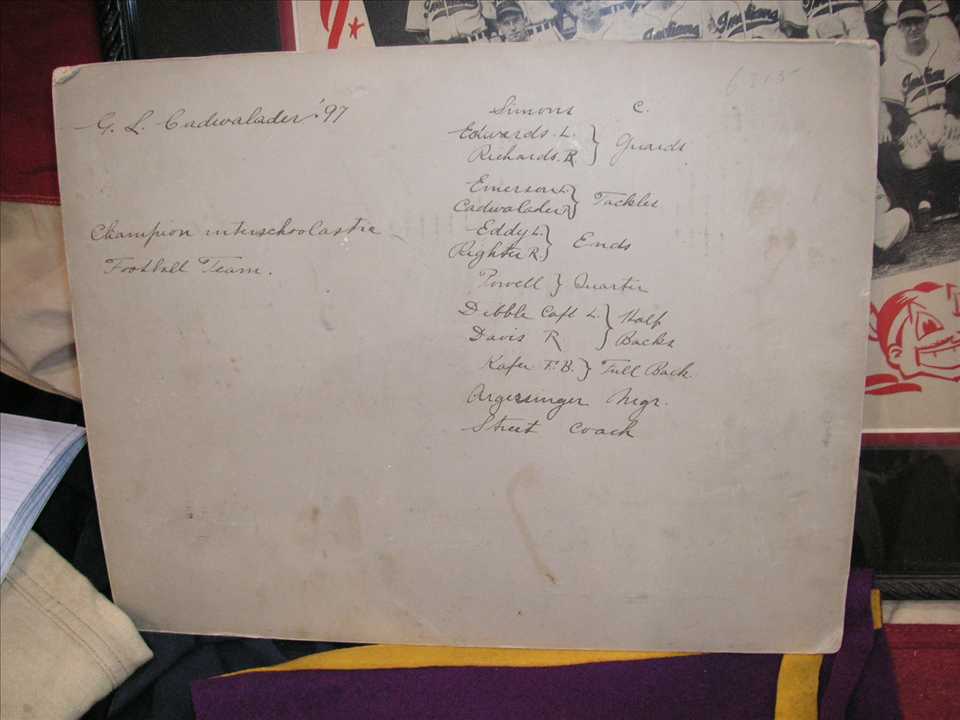 G. L. Cadwalader '97
Champion interschoolastic
Football Team.
6315
Simons C.
Edwards. L. } Guards
Richards. R. }
Emerson L. } Tackles
Cadwalader R }
Eddy L. } Ends
Righter R. }
Powell } Quarter
Dibble Capt L. } Half
Davis R } Backs
Kafer F. B. } Full Back
Argersinger Mgr.
Street Coach
Indians
Indians
Indians